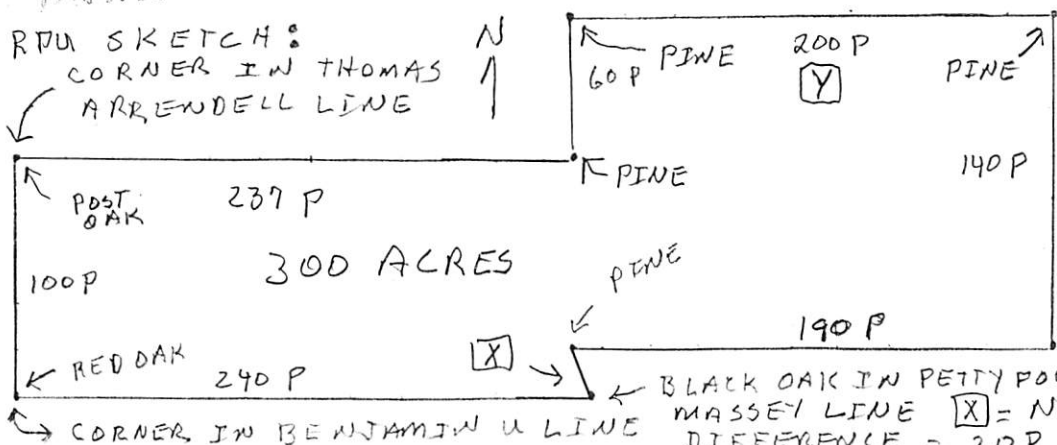 RPU SKETCH:
CORNER IN THOMAS
ARRENDELL LINE
N
60 P
PINE
200 P
Y
PINE
PINE
140 P
POST
OAK
237 P
300 ACRES
100 P
PINE
190 P
RED OAK
240 P
X
BLACK OAK IN PETTY
MASSEY LINE X = N
CORNER IN BENJAMIN U LINE
DIFFERENCE =